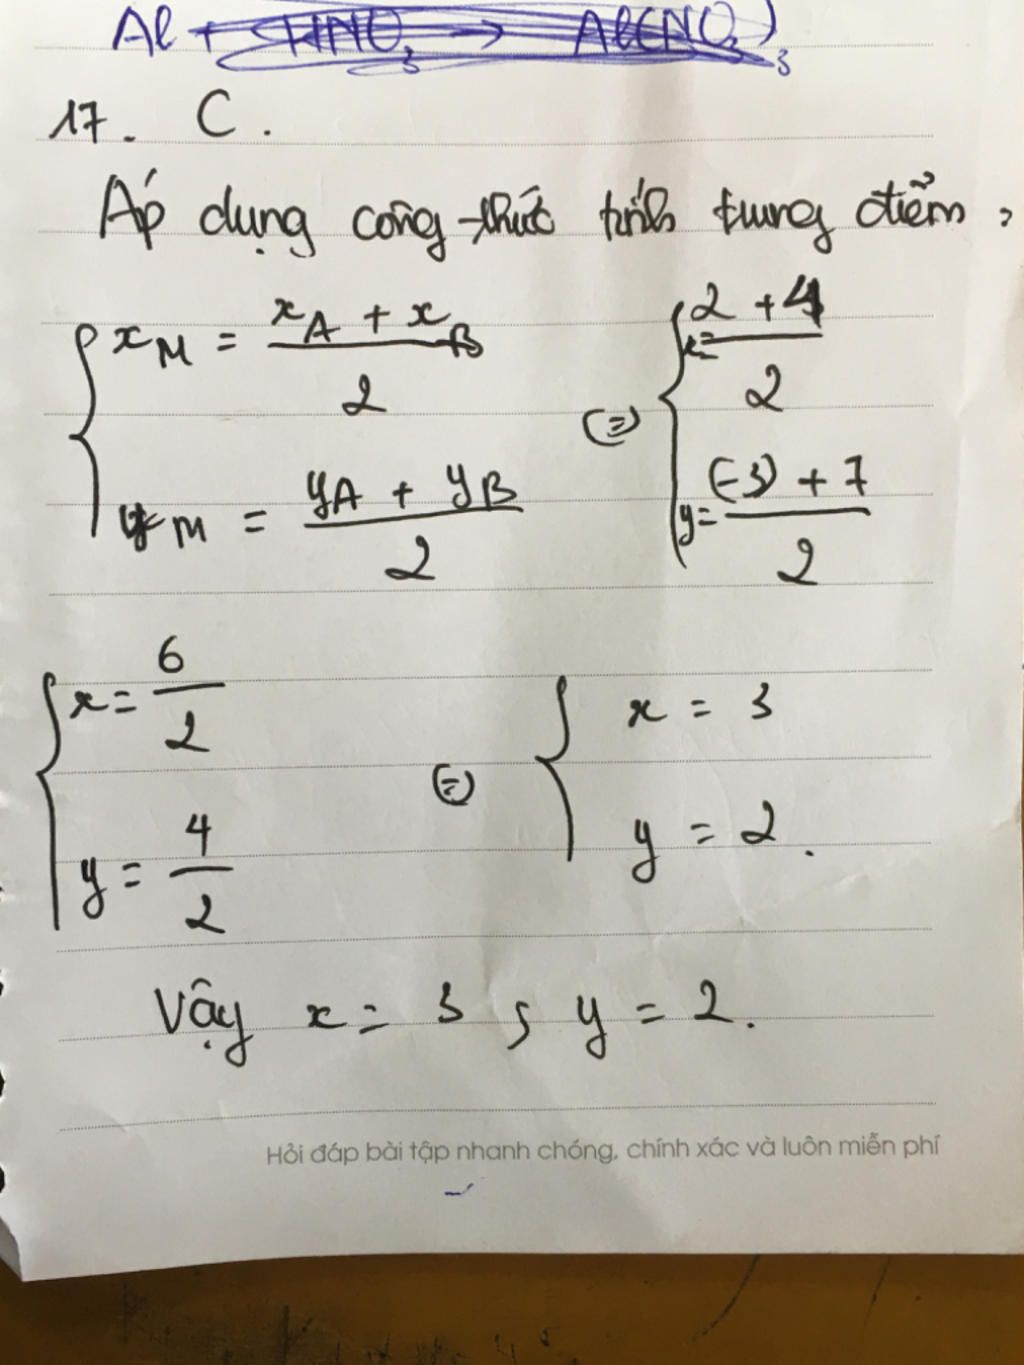 Al + HNO₃ → Al(NO₃)₃
17. C.
Áp dụng công thức tính trung điểm,
x_M = (x_A + x_B)/2 (=) x = (2 + 4)/2
y_M = (y_A + y_B)/2 y = ((-3) + 7)/2
x = 6/2 (=) x = 3
y = 4/2 y = 2.
Vậy x = 3 ; y = 2.
Hỏi đáp bài tập nhanh chóng, chính xác và luôn miễn phí